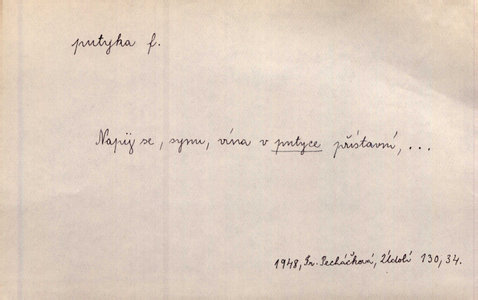 putyka f.
Napij se, synu, vína v putyce přístavní, ...
1948, Fr. Pecháčková, Údolí 130, 34.